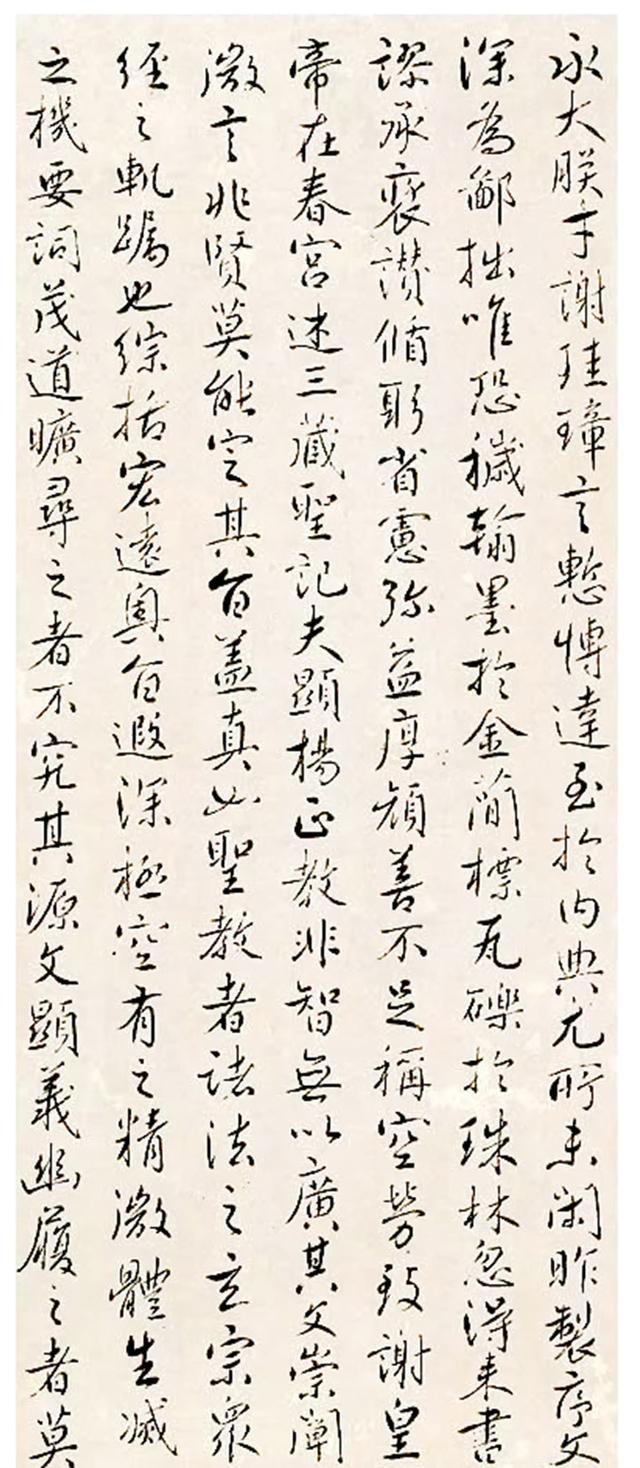 永大朕才謝珪璋言慙博達至於内典尤所未閑昨製序文
深為鄙拙唯恐穢翰墨於金簡標瓦礫於珠林忽得来書
謬承褒讃循躬省慮弥益厚顔善不足稱空勞致謝皇
帝在春宮述三藏聖記夫顯揚正教非智無以廣其文崇闡
微言非賢莫能定其旨盖真如聖教者諸法之玄宗衆
經之軌躅也綜括宏遠奧旨遐深極空有之精微體生滅
之機要詞茂道曠尋之者不究其源文顯義幽履之者莫